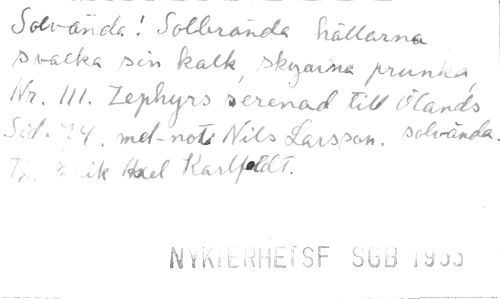 Solvända! Solbrända hällarna
svalka sin kalk, skyarna prunka,
Nr. 111. Zephyrs serenad till Ölands
Sid. 74. mel-not: Nils Larsson. solvända.
Erik Axel Karlfeldt.
NYKTERHETSF SGB 1955